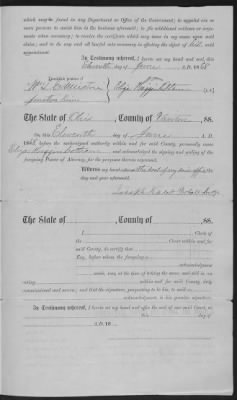 which may be found in any Department or Office of the Government; to appoint one or
more persons to assist him in the business aforesaid; to file additional evidence or arguments
when necessary; to receive the certificate which may issue to my name upon said
claim; and to do any and all lawful acts necessary to effecting the object of said
appointment.
In Testimony whereof, I have set my hand and seal, this
Eleventh day of June A. D. 1868
Executed in presence of
The State of Ohio, County of Vinton, ss.
On this Eleventh day of June A. D.
1868 before the undersigned authority within and for said County, personally came
and acknowledged the signing and sealing of the
foregoing Power of Attorney for the purposes therein expressed.
Witness my hand
day and year aforesaid.
Joseph Probate Judge
The State of , County of , ss.
I, Clerk of
the Court within and for
said County, do certify that
Esq., before whom the foregoing
acknowledgment
made, was, at the time of taking the same, and still is an
acting within and for said County, duly
commissioned and sworn; and that the signature, purporting to be his, to said
acknowledgment, is his genuine signature.
In Testimony whereof, I have set my hand and affix the seal of our said Court, at
this day of
A. D. 18